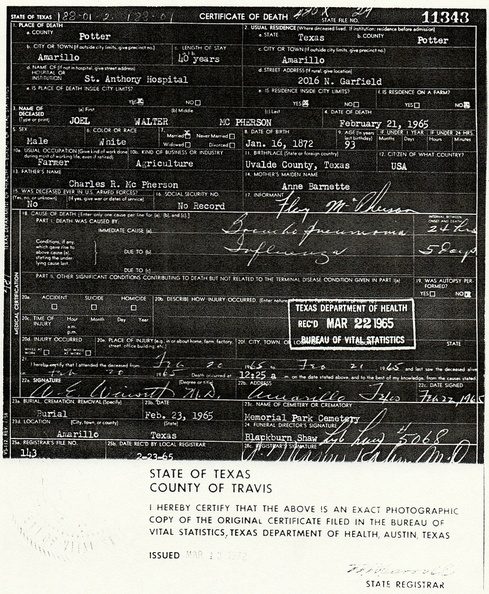 STATE OF TEXAS
CERTIFICATE OF DEATH
STATE FILE NO. 11343
1. PLACE OF DEATH
a. COUNTY Potter
2. USUAL RESIDENCE (Where deceased lived. If institution: residence before admission)
a. STATE Texas b. COUNTY Potter
b. CITY OR TOWN (If outside city limits, give precinct no.) Amarillo
c. LENGTH OF STAY 40 years
c. CITY OR TOWN (If outside city limits, give precinct no.) Amarillo
d. NAME OF (If not in hospital, give street address) HOSPITAL OR INSTITUTION St. Anthony Hospital
d. STREET ADDRESS (If rural, give location) 2016 N. Garfield
e. IS PLACE OF DEATH INSIDE CITY LIMITS? YES NO
e. IS RESIDENCE INSIDE CITY LIMITS? YES NO
f. IS RESIDENCE ON A FARM? YES NO
3. NAME OF DECEASED (Type or print) (a) First JOEL (b) Middle WALTER (c) Last MC PHERSON
4. DATE OF DEATH February 21, 1965
5. SEX Male
6. COLOR OR RACE White
7. Married Never Married Widowed Divorced
8. DATE OF BIRTH Jan. 16, 1872
9. AGE (In years last birthday) 93
IF UNDER 1 YEAR Months Days
IF UNDER 24 HRS. Hours Min.
10a. USUAL OCCUPATION (Give kind of work done during most of working life, even if retired) Farmer
10b. KIND OF BUSINESS OR INDUSTRY Agriculture
11. BIRTHPLACE (State or foreign country) Uvalde County, Texas
12. CITIZEN OF WHAT COUNTRY? USA
13. FATHER'S NAME Charles R. Mc Pherson
14. MOTHER'S MAIDEN NAME Anne Barnette
15. WAS DECEASED EVER IN U.S. ARMED FORCES? (Yes, no, or unknown) (If yes, give war or dates of service) No
16. SOCIAL SECURITY NO. No Record
17. INFORMANT Floy McPherson
18. CAUSE OF DEATH [Enter only one cause per line for (a), (b), and (c).]
INTERVAL BETWEEN ONSET AND DEATH
PART I. DEATH WAS CAUSED BY:
IMMEDIATE CAUSE (a) Broncho pneumonia 24 hrs
Conditions, if any, which gave rise to above cause (a) stating the underlying cause last.
DUE TO (b) Influenza 5 days
DUE TO (c)
PART II. OTHER SIGNIFICANT CONDITIONS CONTRIBUTING TO DEATH BUT NOT RELATED TO THE TERMINAL DISEASE CONDITION GIVEN IN PART I(a)
19. WAS AUTOPSY PERFORMED? YES NO
MEDICAL CERTIFICATION
20a. ACCIDENT SUICIDE HOMICIDE
20b. DESCRIBE HOW INJURY OCCURRED.
20c. TIME OF INJURY Hour Month Day Year a.m. p.m.
TEXAS DEPARTMENT OF HEALTH
REC'D MAR 22 1965
BUREAU OF VITAL STATISTICS
20d. INJURY OCCURRED
20e. PLACE OF INJURY (e.g., in or about home, farm, factory, street, office building, etc.)
20f. CITY, TOWN, STATE
21. I hereby certify that I attended the deceased from Feb 20 1965 to Feb 21 1965 and last saw the deceased alive
Feb 20 1965 Death occurred at 12:25 a on the date stated above, and to the best of my knowledge, from the causes stated.
22a. SIGNATURE (Degree or title) M.D.
22b. ADDRESS Amarillo
22c. DATE SIGNED Feb 22, 1965
23a. BURIAL, CREMATION, REMOVAL (Specify) Burial
23b. DATE Feb. 23, 1965
23c. NAME OF CEMETERY OR CREMATORY Memorial Park Cemetery
23d. LOCATION (City, town, or county) (State) Amarillo Texas
24. FUNERAL DIRECTOR'S SIGNATURE Blackburn Shaw #5068
25a. REGISTRAR'S FILE NO. 143
25b. DATE REC'D BY LOCAL REGISTRAR 2-23-65
25c. REGISTRAR'S SIGNATURE
STATE OF TEXAS
COUNTY OF TRAVIS
I HEREBY CERTIFY THAT THE ABOVE IS AN EXACT PHOTOGRAPHIC
COPY OF THE ORIGINAL CERTIFICATE FILED IN THE BUREAU OF
VITAL STATISTICS, TEXAS DEPARTMENT OF HEALTH, AUSTIN, TEXAS
ISSUED MAR
STATE REGISTRAR